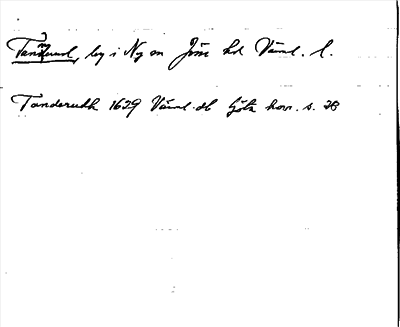 Tanserud, by i Ny sn Jösse hd Värml. l.
Tanderudh 1629 Värml. dl Göta hovr. s. 28